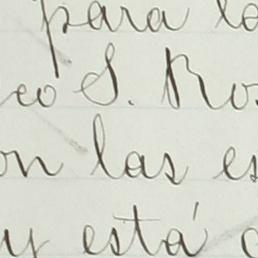 para lo
eo S. Ro
on las es
y está